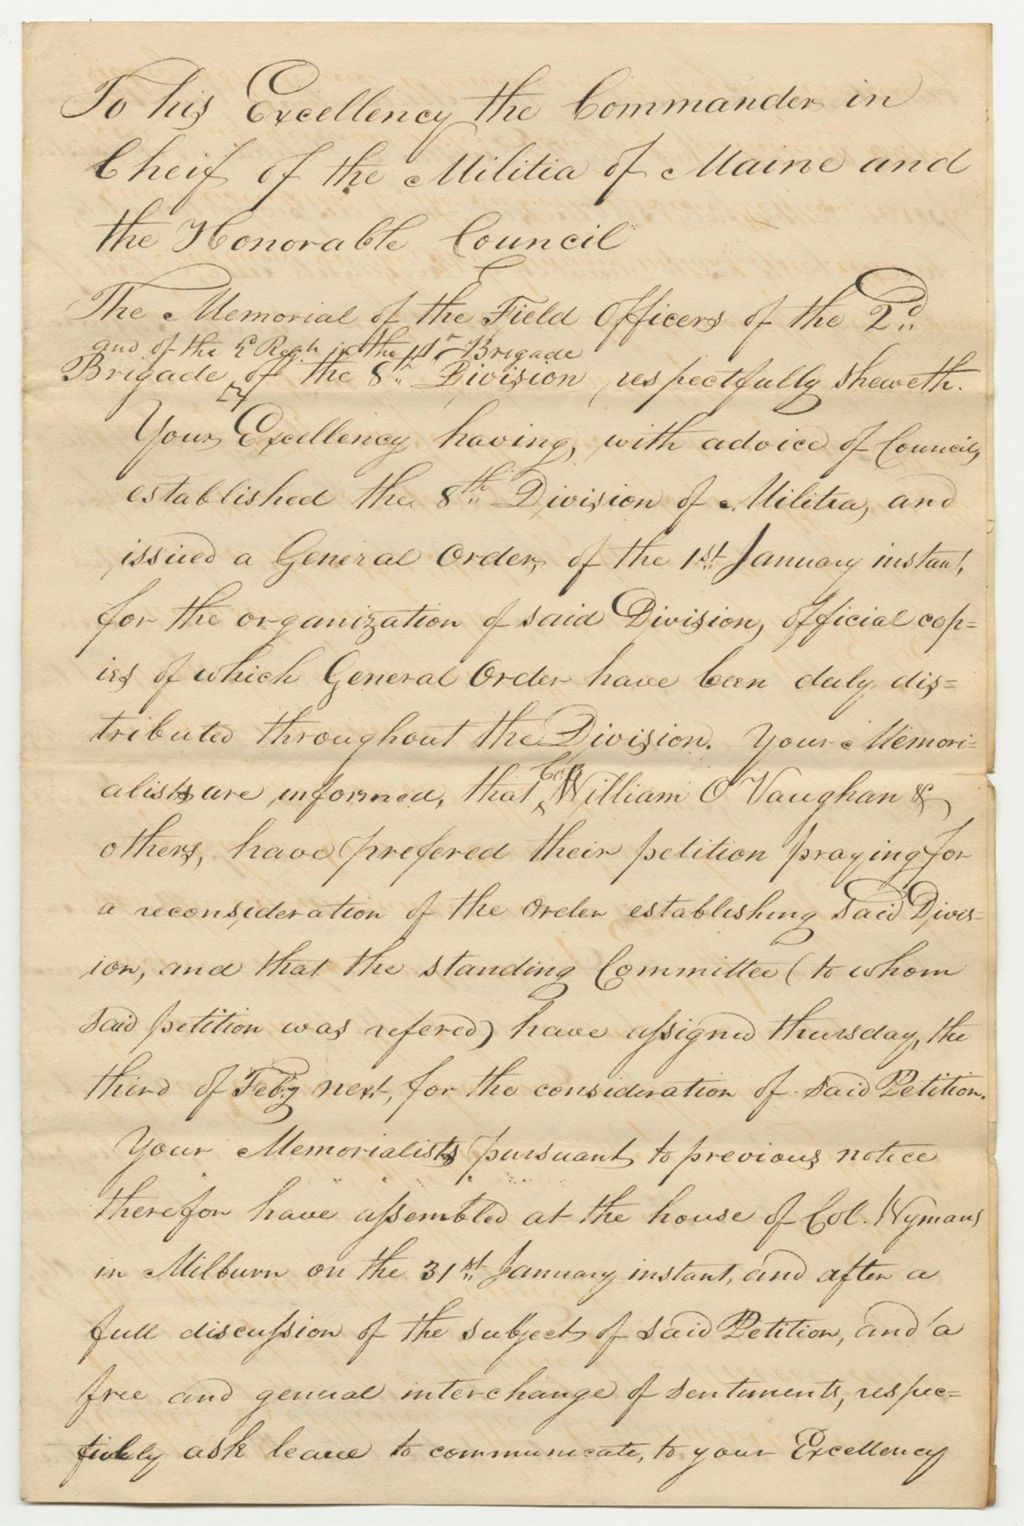 To his Excellency the Commander in
Cheif of the Militia of Maine and
the Honorable Council
The Memorial of the Field Officers of the 2d
and of the Regt in the 1st Brigade
Brigade of the 8th Division respectfully sheweth.
Your Excellency having, with advice of Council,
established the 8th Division of Militia, and
issued a General Order, of the 1st January instant,
for the organization of said Division, official cop=
ies of which General Order have been duly dis=
tributed throughout the Division. Your Memori=
alists are informed, that Col William O Vaughan &
others, have prefered their petition praying for
a reconsideration of the Order establishing said Divis=
ion, and that the standing Committee (to whom
said petition was refered) have assigned thursday, the
third of Feby next, for the consideration of said Petition.
Your Memorialists pursuant to previous notice
therefor have assembled at the house of Col. Wymans
in Milburn on the 31st January instant, and after a
full discussion of the subject of said Petition, and a
free and general interchange of sentiments, respec=
tively ask leave to communicate, to your Excellency